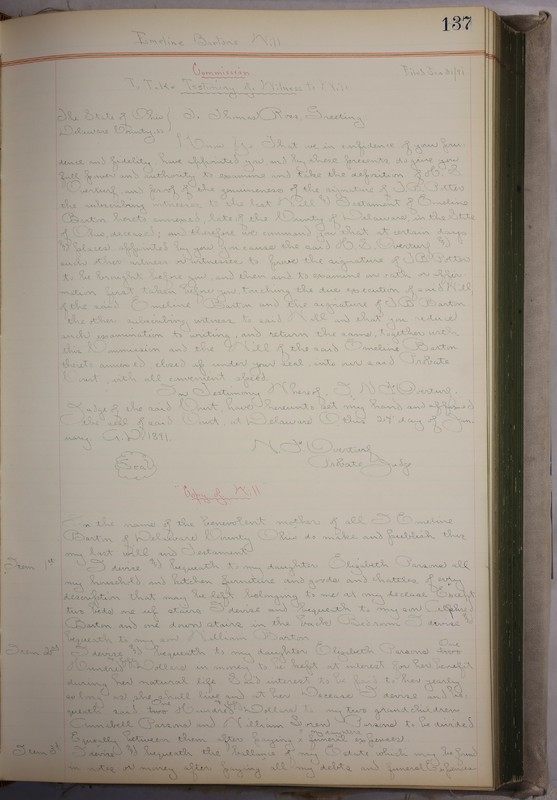 137
Emeline Bartons Will
Commission
Filed Jan 30/91
To Take Testimony of Witness to Will
The State of Ohio
Delaware County ss
To Thomas Greeting
Know Ye That we in confidence of your pru-
dence and fidelity have appointed you and by these presents do give you
full power and authority to examine and take the deposition of
Overturf, and proof of the genuineness of the signature of J.B.
the subscribing witnesses to the last Will & Testament of Emeline
Barton hereto annexed, late of the County of Delaware, in the State
of Ohio, deceased; and therefore we command you that at certain days
& places appointed by you you cause the said Overturf &
such other witness or witnesses to prove the signature of J.B.
to be brought before you, and then and there examine on oath or affir-
mation first taken before you, touching the due execution of said Will
of the said Emeline Barton and the signature of J.B. Barton
the other subscribing witness to said Will and that you reduce
such examination to writing, and return the same, together with
this Commission and the Will of the said Emeline Barton
thereto annexed, closed up under your seal, into our said Probate
Court, with all convenient speed.
In Testimony Whereof, I, N F Overturf,
Judge of the said Court have hereunto set my hand and affixed
the seal of said Court, at Delaware Ohio day of Jan-
uary A.D. 1891.
N. F. Overturf
Probate Judge
Seal
"Copy of Will"
In the name of the benevolent mother of all I Emeline
Barton of Delaware County Ohio do make and publish this
my last will and Testament
Item 1st
I devise & bequeath to my daughter Elizabeth Parsons all
my household and kitchen furniture and goods and chattles of every
description that may be left belonging to me at my decease Except
two beds one up stairs I devise and bequeath to my son
Barton and one down stairs in the Bed room I devise
bequeath to my son William Barton
Item 2nd
I devise & bequeath to my daughter Elizabeth Parsons One
Hundred Dollars in money to be kept at interest for her benefit
during her natural life and interest to be paid to her yearly
as long as she shall live and at her decease I devise and be-
queath said Hundred Dollars to my two grandchildren
Parsons and William Parsons to be divided
Equally between them after paying funeral expenses
Item 3d
I devise & bequeath the ballance of my Estate which may be found
in notes or money after paying all my debts and funeral Expenses